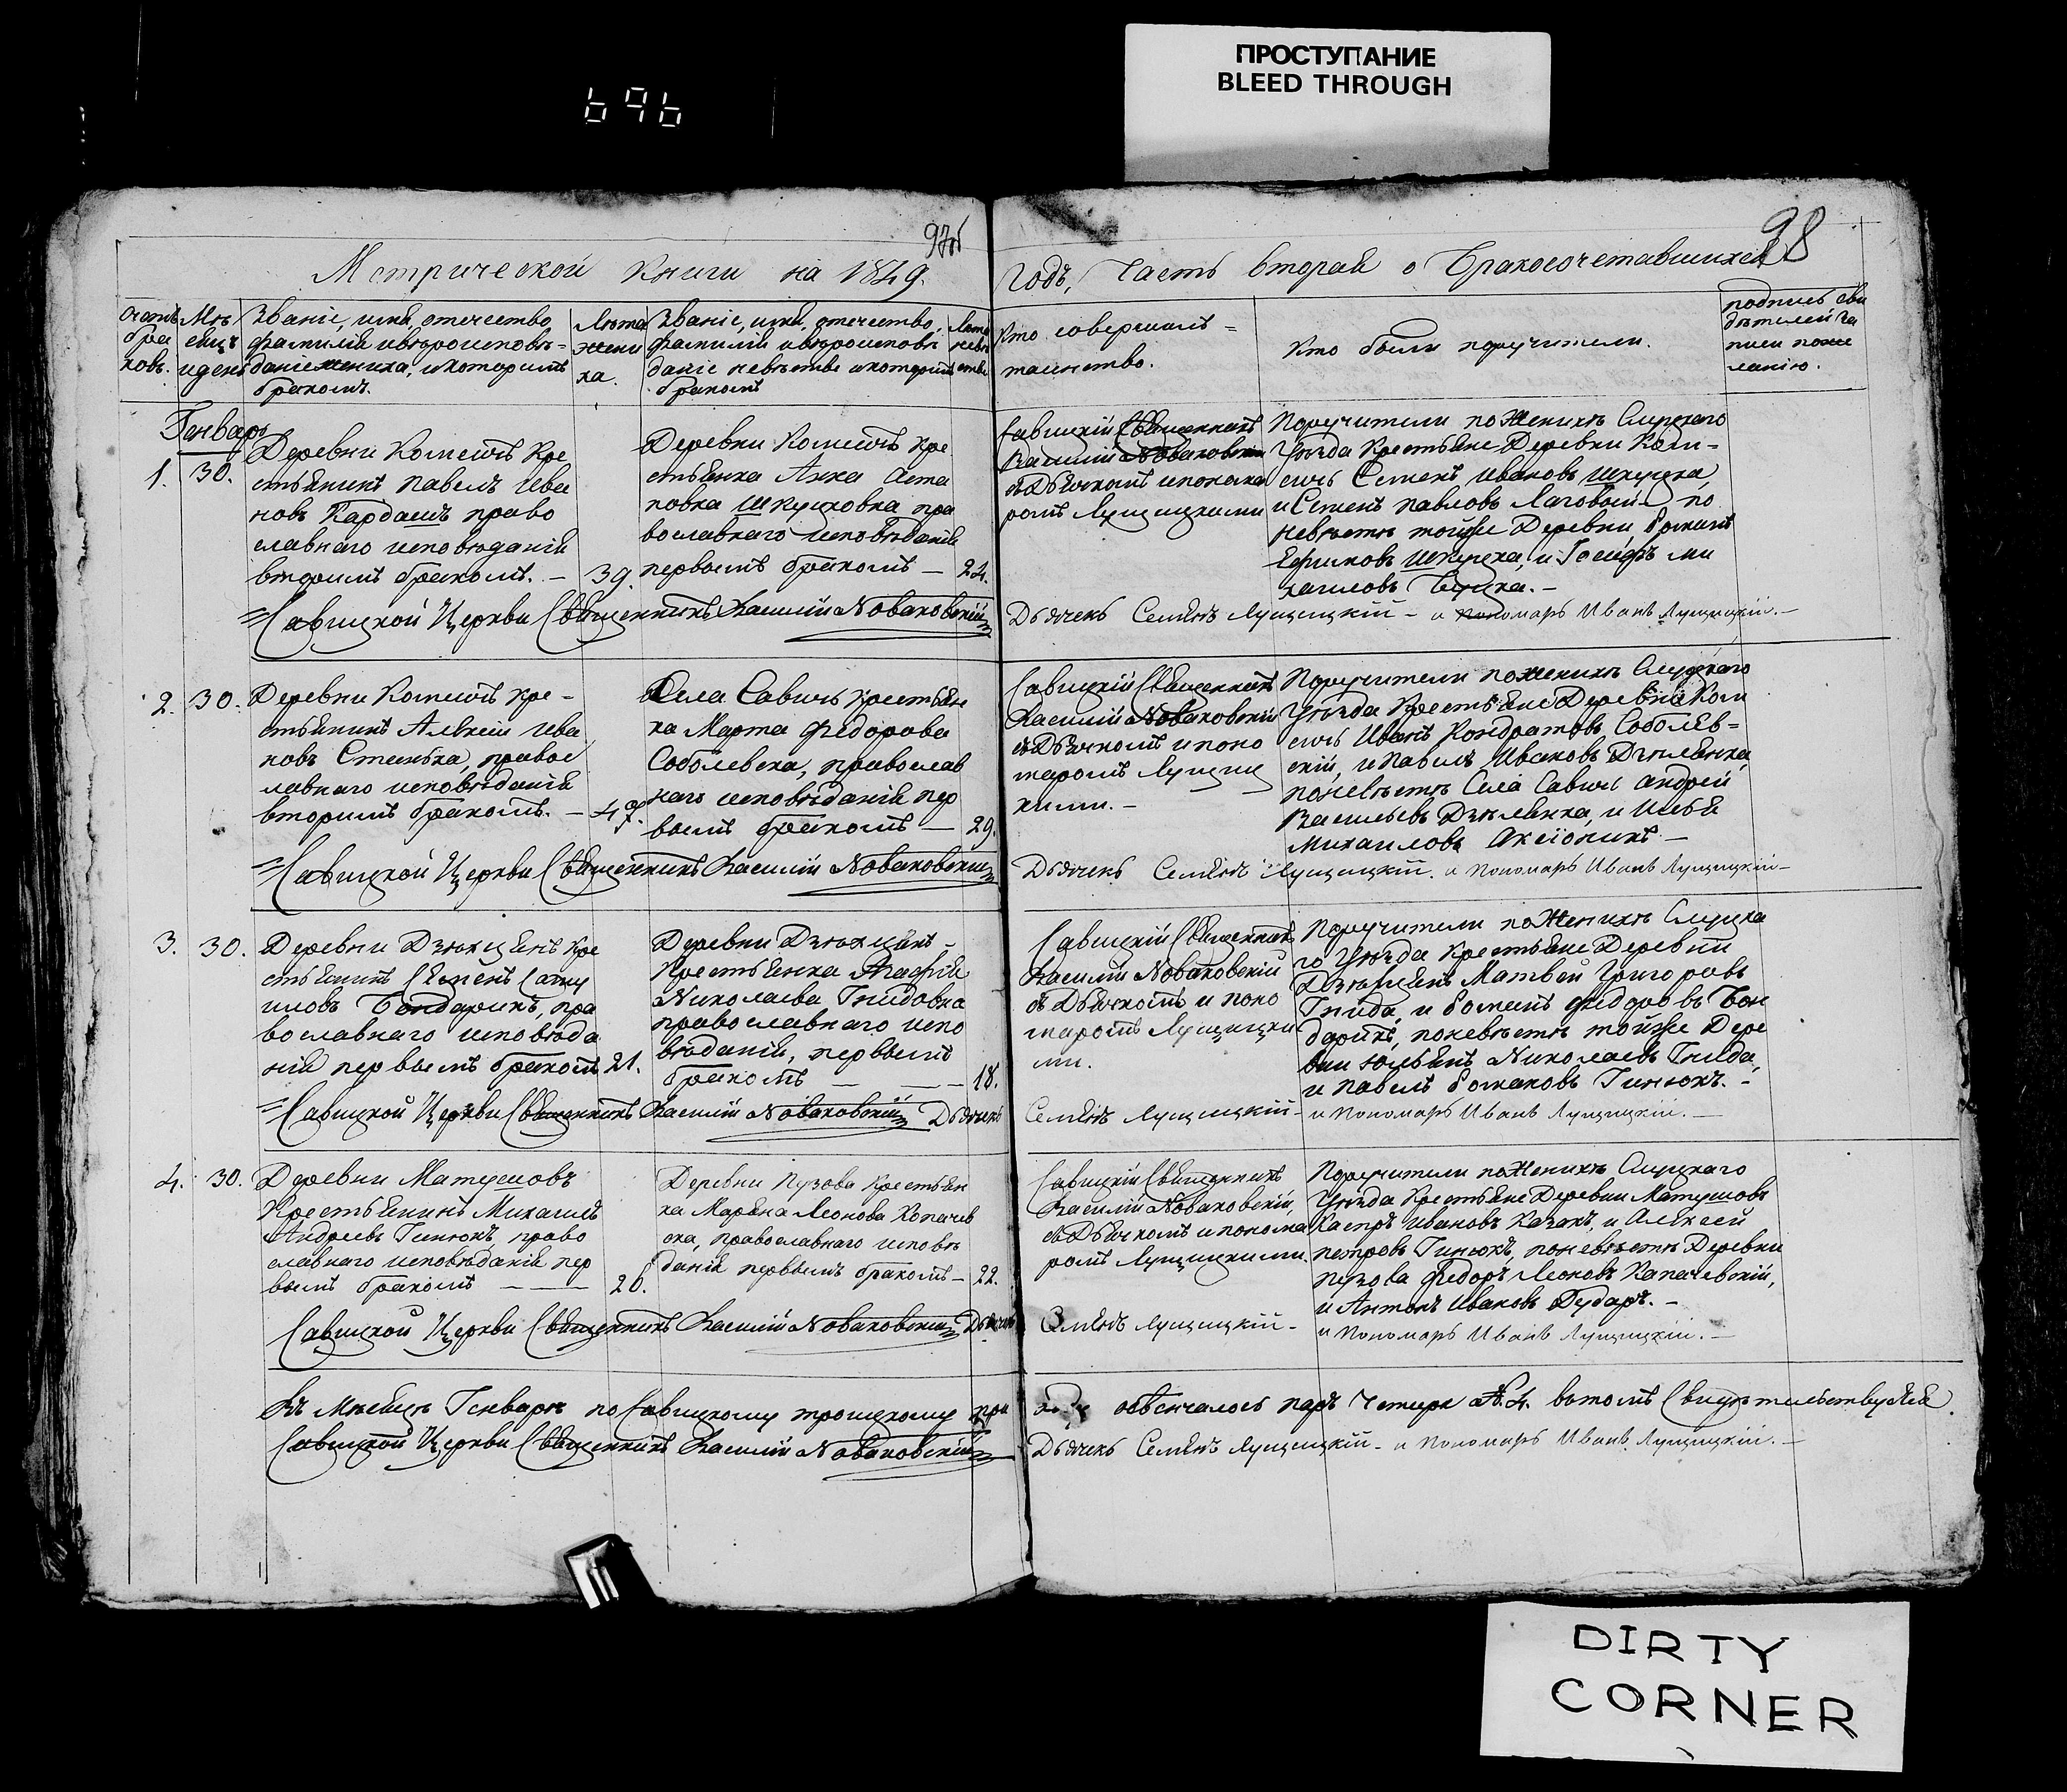 ПРОСТУПАНИЕ
BLEED THROUGH
696
97об
98
Метрической Книги на 1849.
Годъ, Часть вторая о Бракосочетавшихся
Счетъ
бра
ковъ.
Мѣ
сяцъ
и день
Званіе, имя, отечество
фамилія и вѣроисповѣ-
даніе жениха, и которымъ
бракомъ.
Лѣта
жени
ха.
Званіе, имя, отечество,
фамилія и вѣроисповѣ
даніе невѣсты и которымъ
бракомъ
Лета
невѣ
сты
Кто совершалъ
таинство.
Кто были поручители.
подпись сви
дѣтелей за
писи поже
ланію.
Генварь
1.
30.
Деревни Комсичь Кре
стьянинъ Павелъ Ива
новъ Кардашъ право
славнаго исповѣданія
вторымъ бракомъ. —
39.
Деревни Комсичь Кре
стьянка Анна Аста
повна Шкурковна пра
вославнаго исповѣданія
первымъ бракомъ —
24.
Савицкій Священникъ
Василій Новаковскій
съ Дьячкомъ и понома
ромъ Лущицкими
Поручители по Женихѣ Слуцкаго
Уѣзда Крестьяне Деревни Коми-
сичь Семенъ Ивановъ Шкурка,
и Семенъ Павловъ Лаговой по
невѣсте тойже Деревни Романъ
Ефимовъ Шкурка, и Іосифъ Ми
хаиловъ
Савицкой Церкви Священникъ Василій Новаковскій
Дьячекъ Семенъ Лущицкій — и Пономарь Иванъ Лущицкій. —
2.
30.
Деревни Комсичь Кре-
стьянинъ Алексій Ива
новъ Стаська, правос
лавнаго исповѣданія
вторымъ бракомъ. —
47.
Села Савичь Крестьян
ка Марта Федорова
Соболевска, православ
наго исповѣданія пер
вымъ бракомъ —
29.
Савицкій Священникъ
Василій Новаковскій
съ Дьячкомъ и поно
маромъ Лущиц
кими. —
Поручители по Женихѣ Слуцкаго
Уѣзда Крестьяне Деревни Коми
сичь Иванъ Кондратовъ Соболев-
скій, и Павелъ Ивановъ Дзеленка,
по невѣсте Села Савичь Андрей
Васильевъ Дзеленка, и Илья
Михаиловъ Аксіоникъ —
Савицкой Церкви Священникъ Василій Новаковскій
Дьячекъ Семенъ Лущицкій. и Пономарь Иванъ Лущицкій —
3.
30.
Деревни Дзюнцянъ Кре
стьянинъ Семенъ Саму
иловъ Бондарикъ, пра
вославнаго исповѣда
нія первымъ бракомъ
21.
Деревни Дзюнцянъ
Крестьянка Агафія
Николаева Гнидовна
православнаго испо
вѣданія, первымъ
бракомъ —
18.
Савицкій Священникъ
Василій Новаковскій
съ Дьячкомъ и поно
маромъ Лущицки
ми.
Поручители по Женихѣ Слуцка
го Уѣзда Крестьяне Деревни
Дзюнцянъ Матвей Григоровъ
Гнида, и Романъ Федоровъ Бон
дарикъ, по невѣсте тойже Дере
вни Юльянъ Николаевъ Гнида,
и Павелъ Романовъ Гинюкъ. —
Савицкой Церкви Священникъ Василій Новаковскій Дьячекъ
Семенъ Лущицкій — и Пономарь Иванъ Лущицкій. —
4.
30.
Деревни Матушовъ
Крестьянинъ Михаилъ
Андреевъ Гинюкъ право
славнаго исповѣданія пер
вымъ бракомъ —
26.
Деревни Пузова Крестьян
ка Марьяна Леонова Копачев
ска, православнаго исповѣ
данія первымъ бракомъ —
22.
Савицкій Священникъ
Василій Новаковскій,
съ Дьячкомъ и понома
ромъ Лущицкими.
Поручители по Женихѣ Слуцкаго
Уѣзда Крестьяне Деревни Матушовъ
Каспръ Ивановъ Казакъ, и Алексей
Петровъ Гинюкъ, по невѣсте Деревни
Пузова Федоръ Леоновъ Капачевскій,
и Антонъ Ивановъ Дударъ. —
Савицкой Церкви Священникъ Василій Новаковскій Дьячекъ
Семенъ Лущицкій —
и Пономарь Иванъ Лущицкій. —
Въ Мѣсяцѣ Генварѣ по Савицкому троицкому при
ходу обвенчалось паръ Четыри №. 4. вътомъ Свидѣтельствуемъ
Савицкой Церкви Священникъ Василій Новаковскій
Дьячекъ Семенъ Лущицкій — и Пономарь Иванъ Лущицкій. —
DIRTY
CORNER